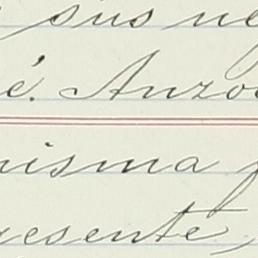 sus ne
é. Anzo
misma
resente,